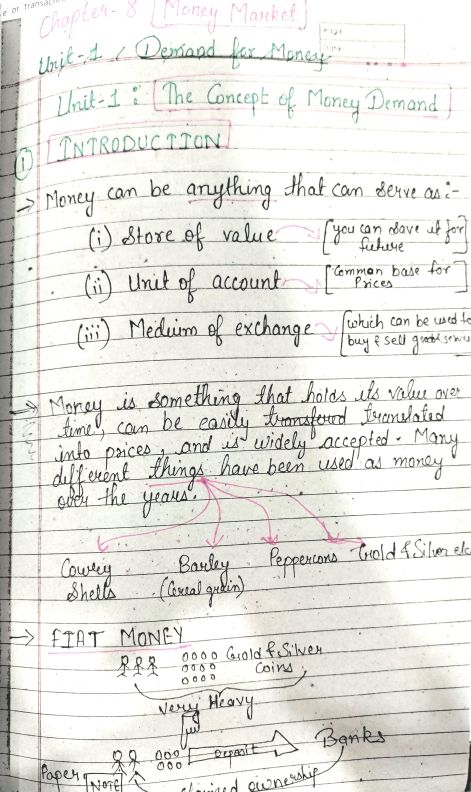 e or transac
Chapter-8 [Money Market]
Unit-1, Demand for Money
Unit-1: [The Concept of Money Demand]
(1) INTRODUCTION
→ Money can be anything that can serve as:-
(i) Store of value → [you can save it for future]
(ii) Unit of account → [Common base for Prices
(iii) Medium of exchange → [which can be used to buy & sell
⇒ Money is something that holds its value over
time, can be easily translated
into prices, and is widely accepted. Many
different things have been used as money
over the years.
Cowry Shells
Barley (Cereal grain)
Peppercons
Gold & Silver etc
→ FIAT MONEY
Gold & Silver Coins
Very Heavy
Deposit
Banks
Paper NOTE
ownership